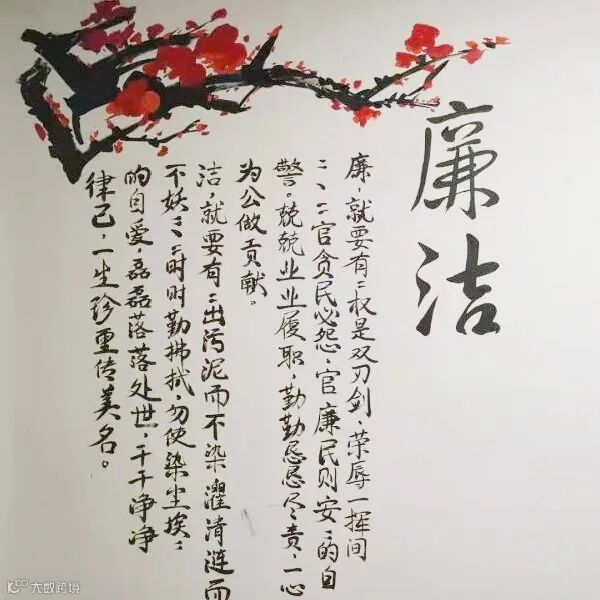 廉洁
廉，就要有“权是双刃剑，荣辱一挥间
”、“官贪民必怨，官廉民则安”的自
警。兢兢业业履职，勤勤恳恳尽责，一心
为公做贡献。
洁，就要有“出污泥而不染，濯清涟而
不妖”、“时时勤拂拭，勿使染尘埃”
的自爱，磊磊落落处世，干干净净
律己，一生珍重传美名。
大数跨境